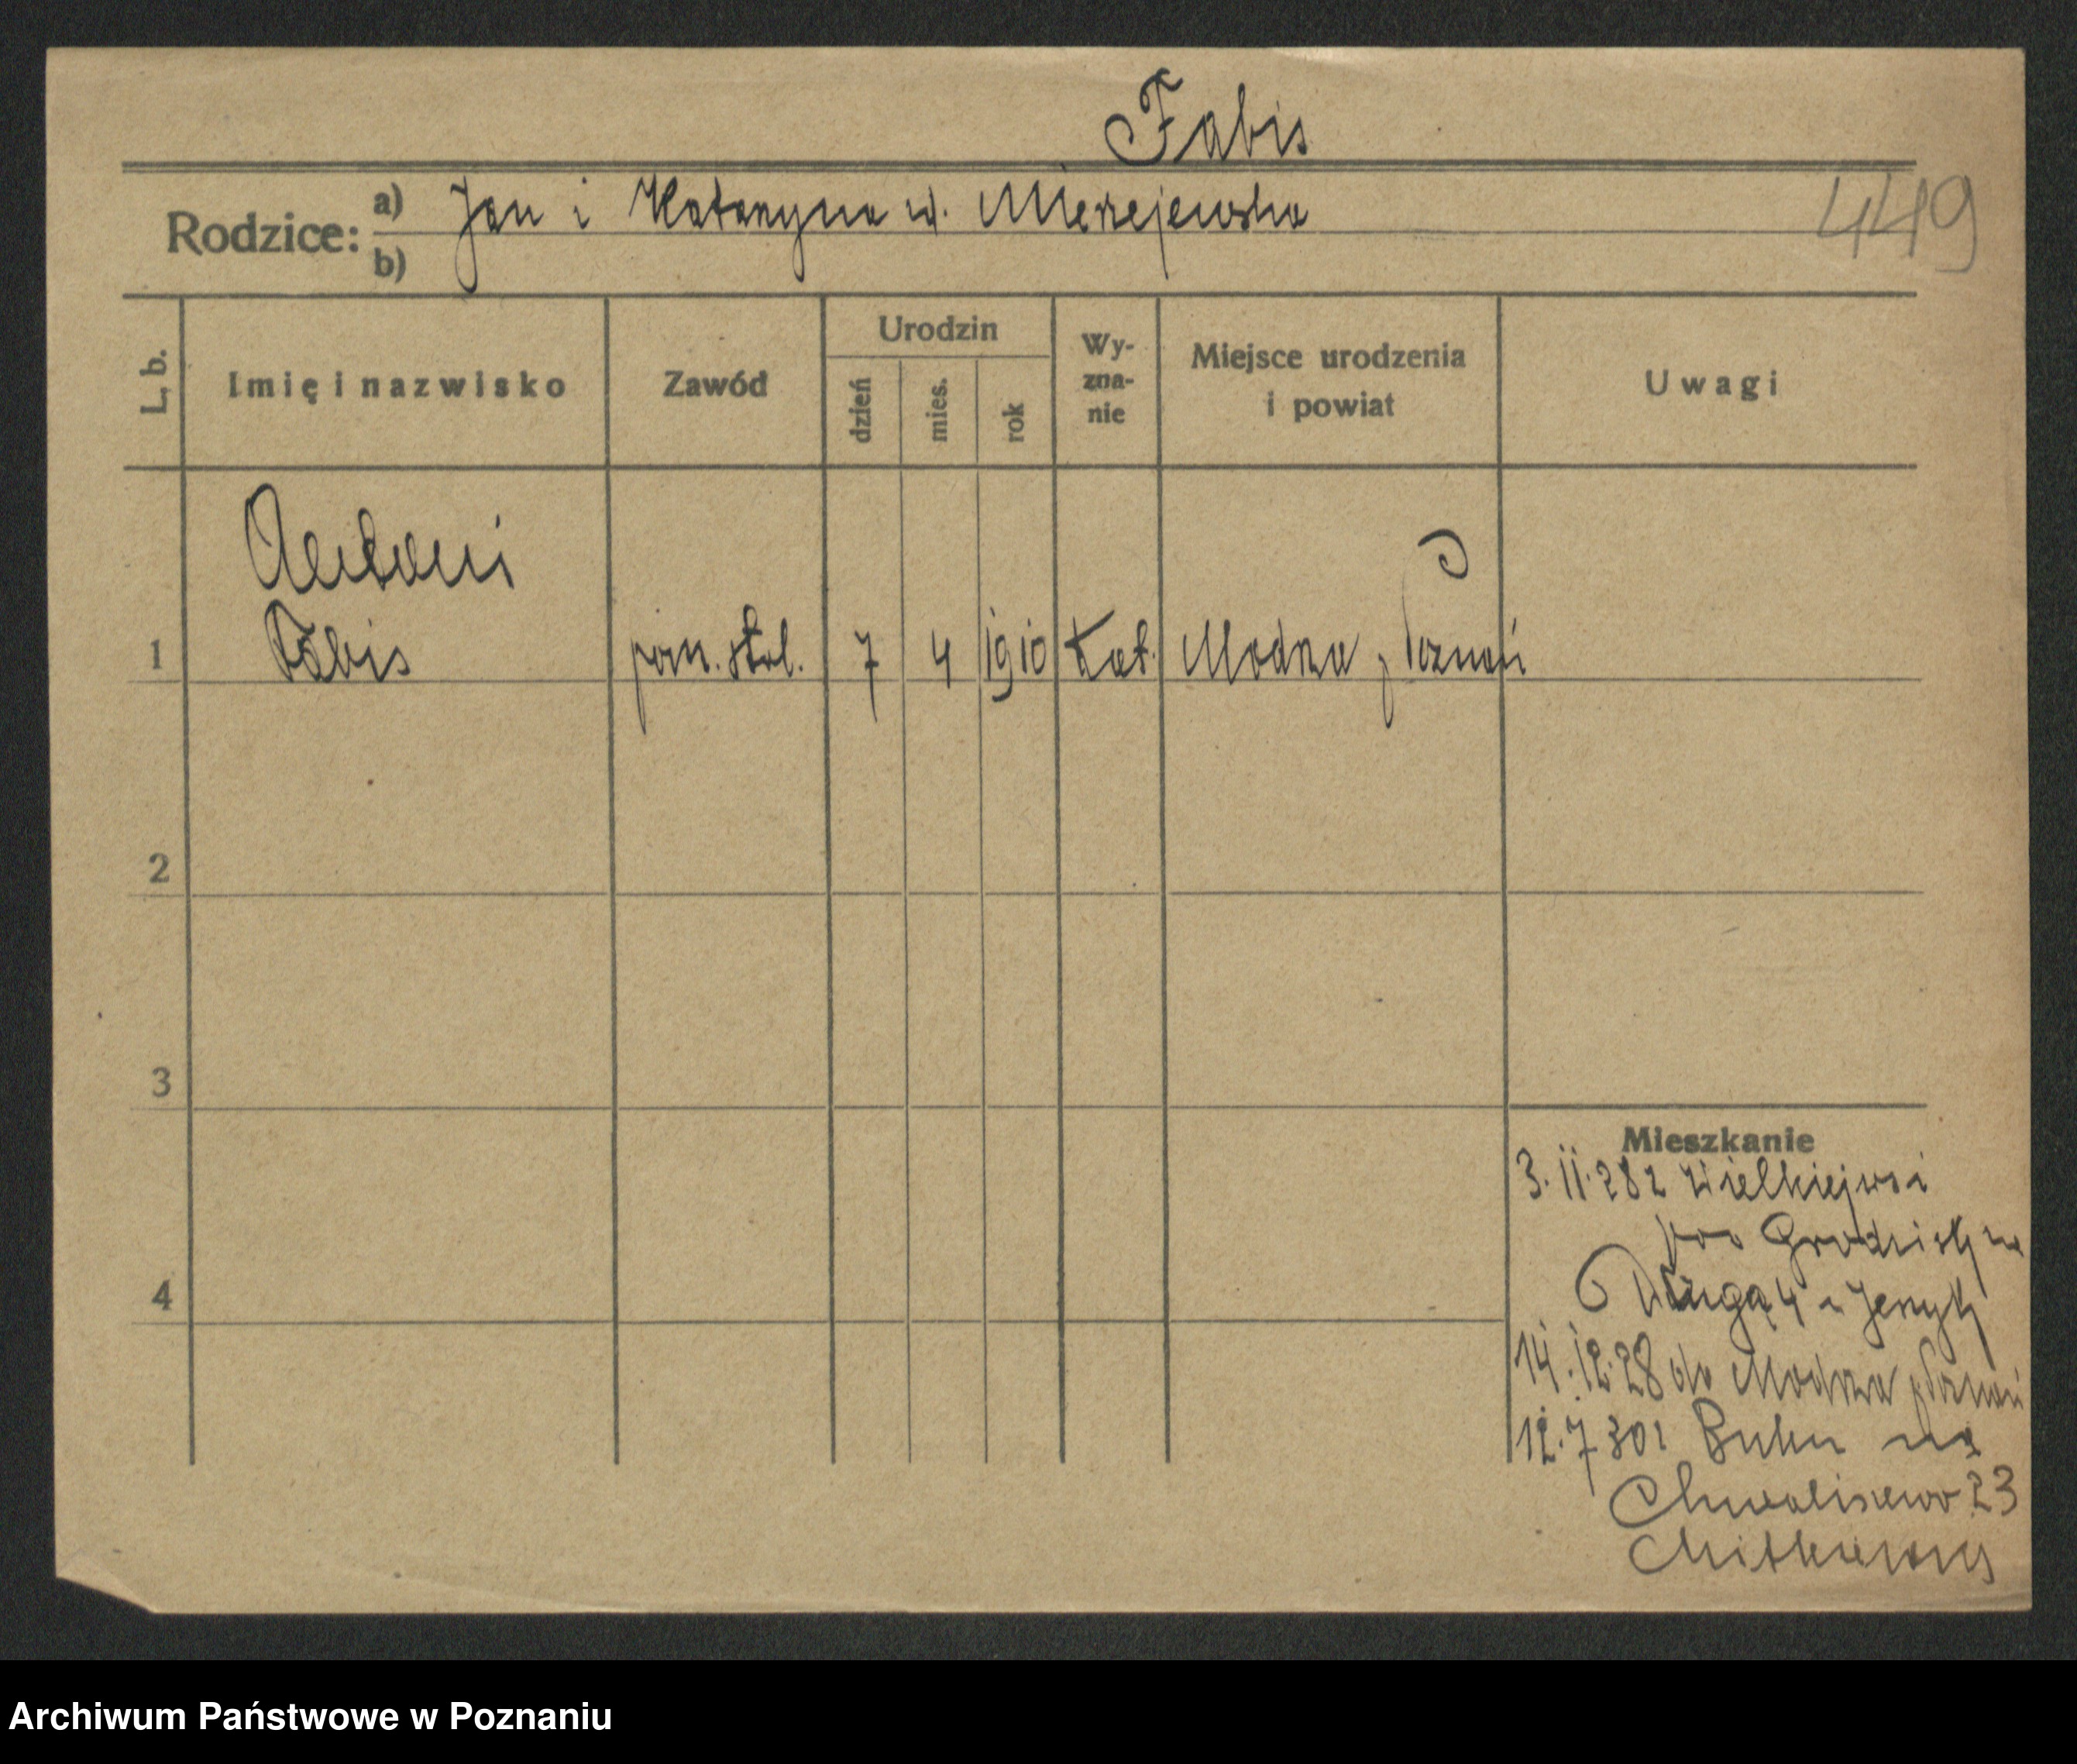 Fabis
Rodzice: a) Jan i Katarzyna u. Mierzejewska
b)
449
L. b.
Imię i nazwisko
Zawód
Urodzin
dzień
mies.
rok
Wy-
zna-
nie
Miejsce urodzenia
i powiat
Uwagi
Antoni
1 Fabis pom. stol. 7 4 1910 kat. Modrze, Poznań
2
3
4
Mieszkanie
3. 11. 28 z Wielkiejwsi
pow Grodzisk na
Długą 4 u Jerzyk
14. 12. 28 do Modrza p Poznań
12. 7 30 z Buku na
Chwaliszewo 23
Archiwum Państwowe w Poznaniu